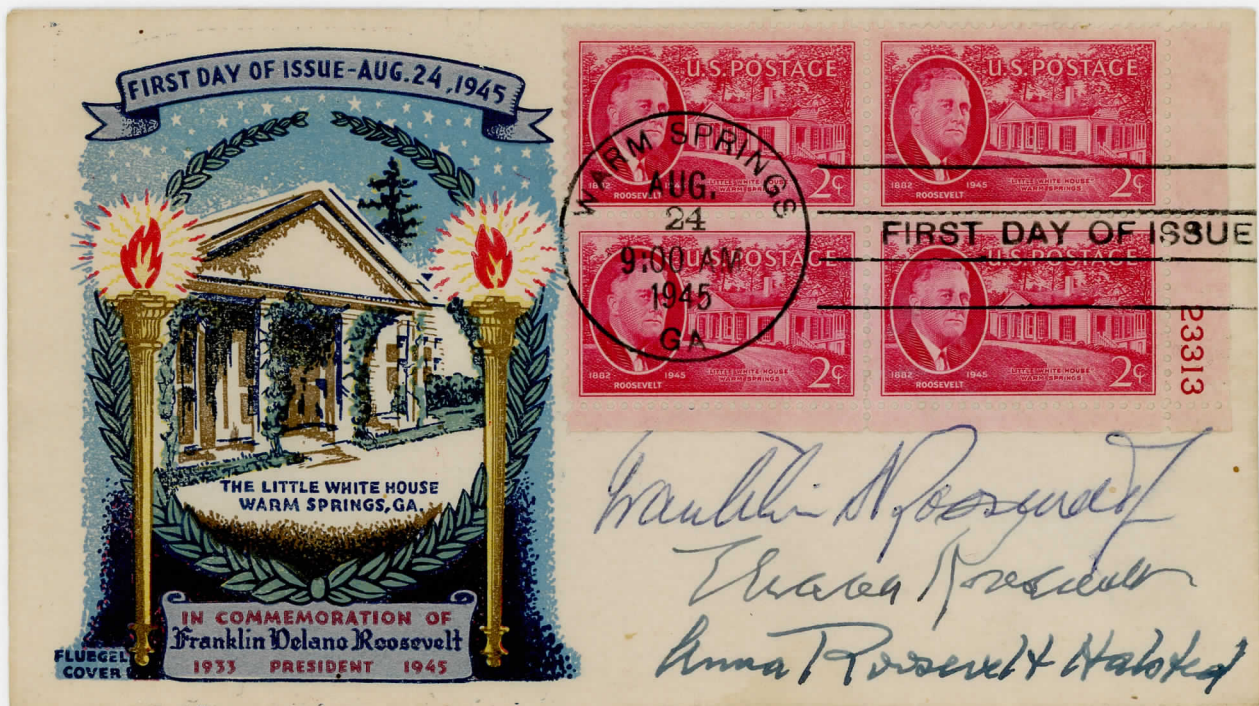 FIRST DAY OF ISSUE-AUG.24,1945
THE LITTLE WHITE HOUSE
WARM SPRINGS, GA.
IN COMMEMORATION OF
Franklin Delano Roosevelt
1933 PRESIDENT 1945
FLUEGEL
COVER
U.S. POSTAGE
1882 ROOSEVELT 1945
LITTLE WHITE HOUSE
WARM SPRINGS
2¢
U.S. POSTAGE
1882 ROOSEVELT 1945
LITTLE WHITE HOUSE
WARM SPRINGS
2¢
U.S. POSTAGE
1882 ROOSEVELT 1945
LITTLE WHITE HOUSE
WARM SPRINGS
2¢
U.S. POSTAGE
1882 ROOSEVELT 1945
LITTLE WHITE HOUSE
WARM SPRINGS
2¢
23313
WARM SPRINGS
AUG.
24
9:00 AM
1945
GA
FIRST DAY OF ISSUE
Franklin D Roosevelt
Eleanor Roosevelt
Anna Roosevelt Halsted